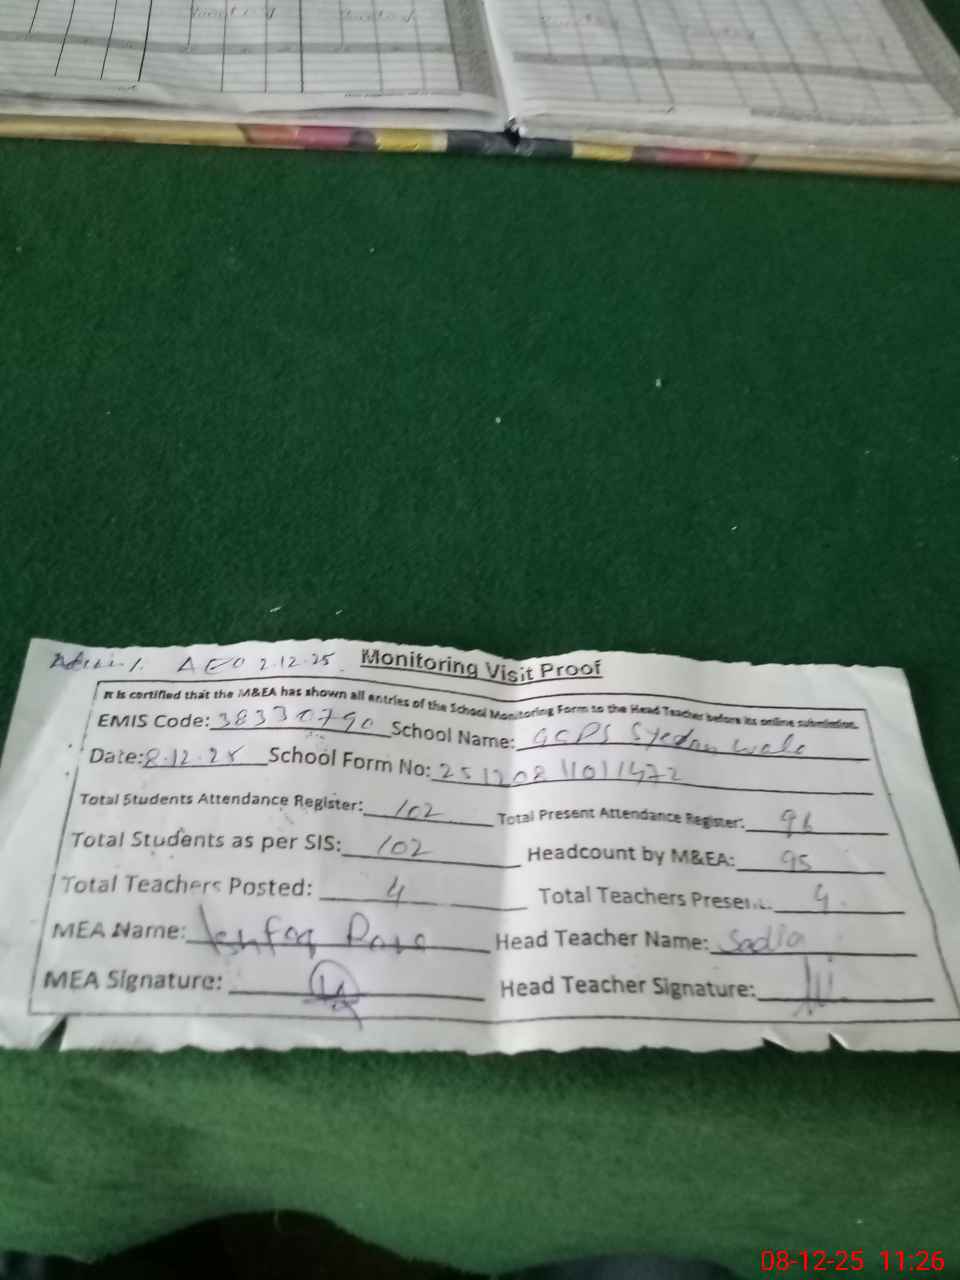 Admin-1. AEO 2.12.25. Monitoring Visit Proof
It is certified that the M&EA has shown all entries of the School Monitoring Form to the Head Teacher before its online submission.
EMIS Code: 38330790 School Name: GGPS Syedan wala
Date: 8.12.25 School Form No: 25120811011472
Total Students Attendance Register: 102 Total Present Attendance Register: 96
Total Students as per SIS: 102 Headcount by M&EA: 95
Total Teachers Posted: 4 Total Teachers Present: 4.
MEA Name: Ishfaq Head Teacher Name: Sadia
MEA Signature: Head Teacher Signature:
08-12-25 11:26